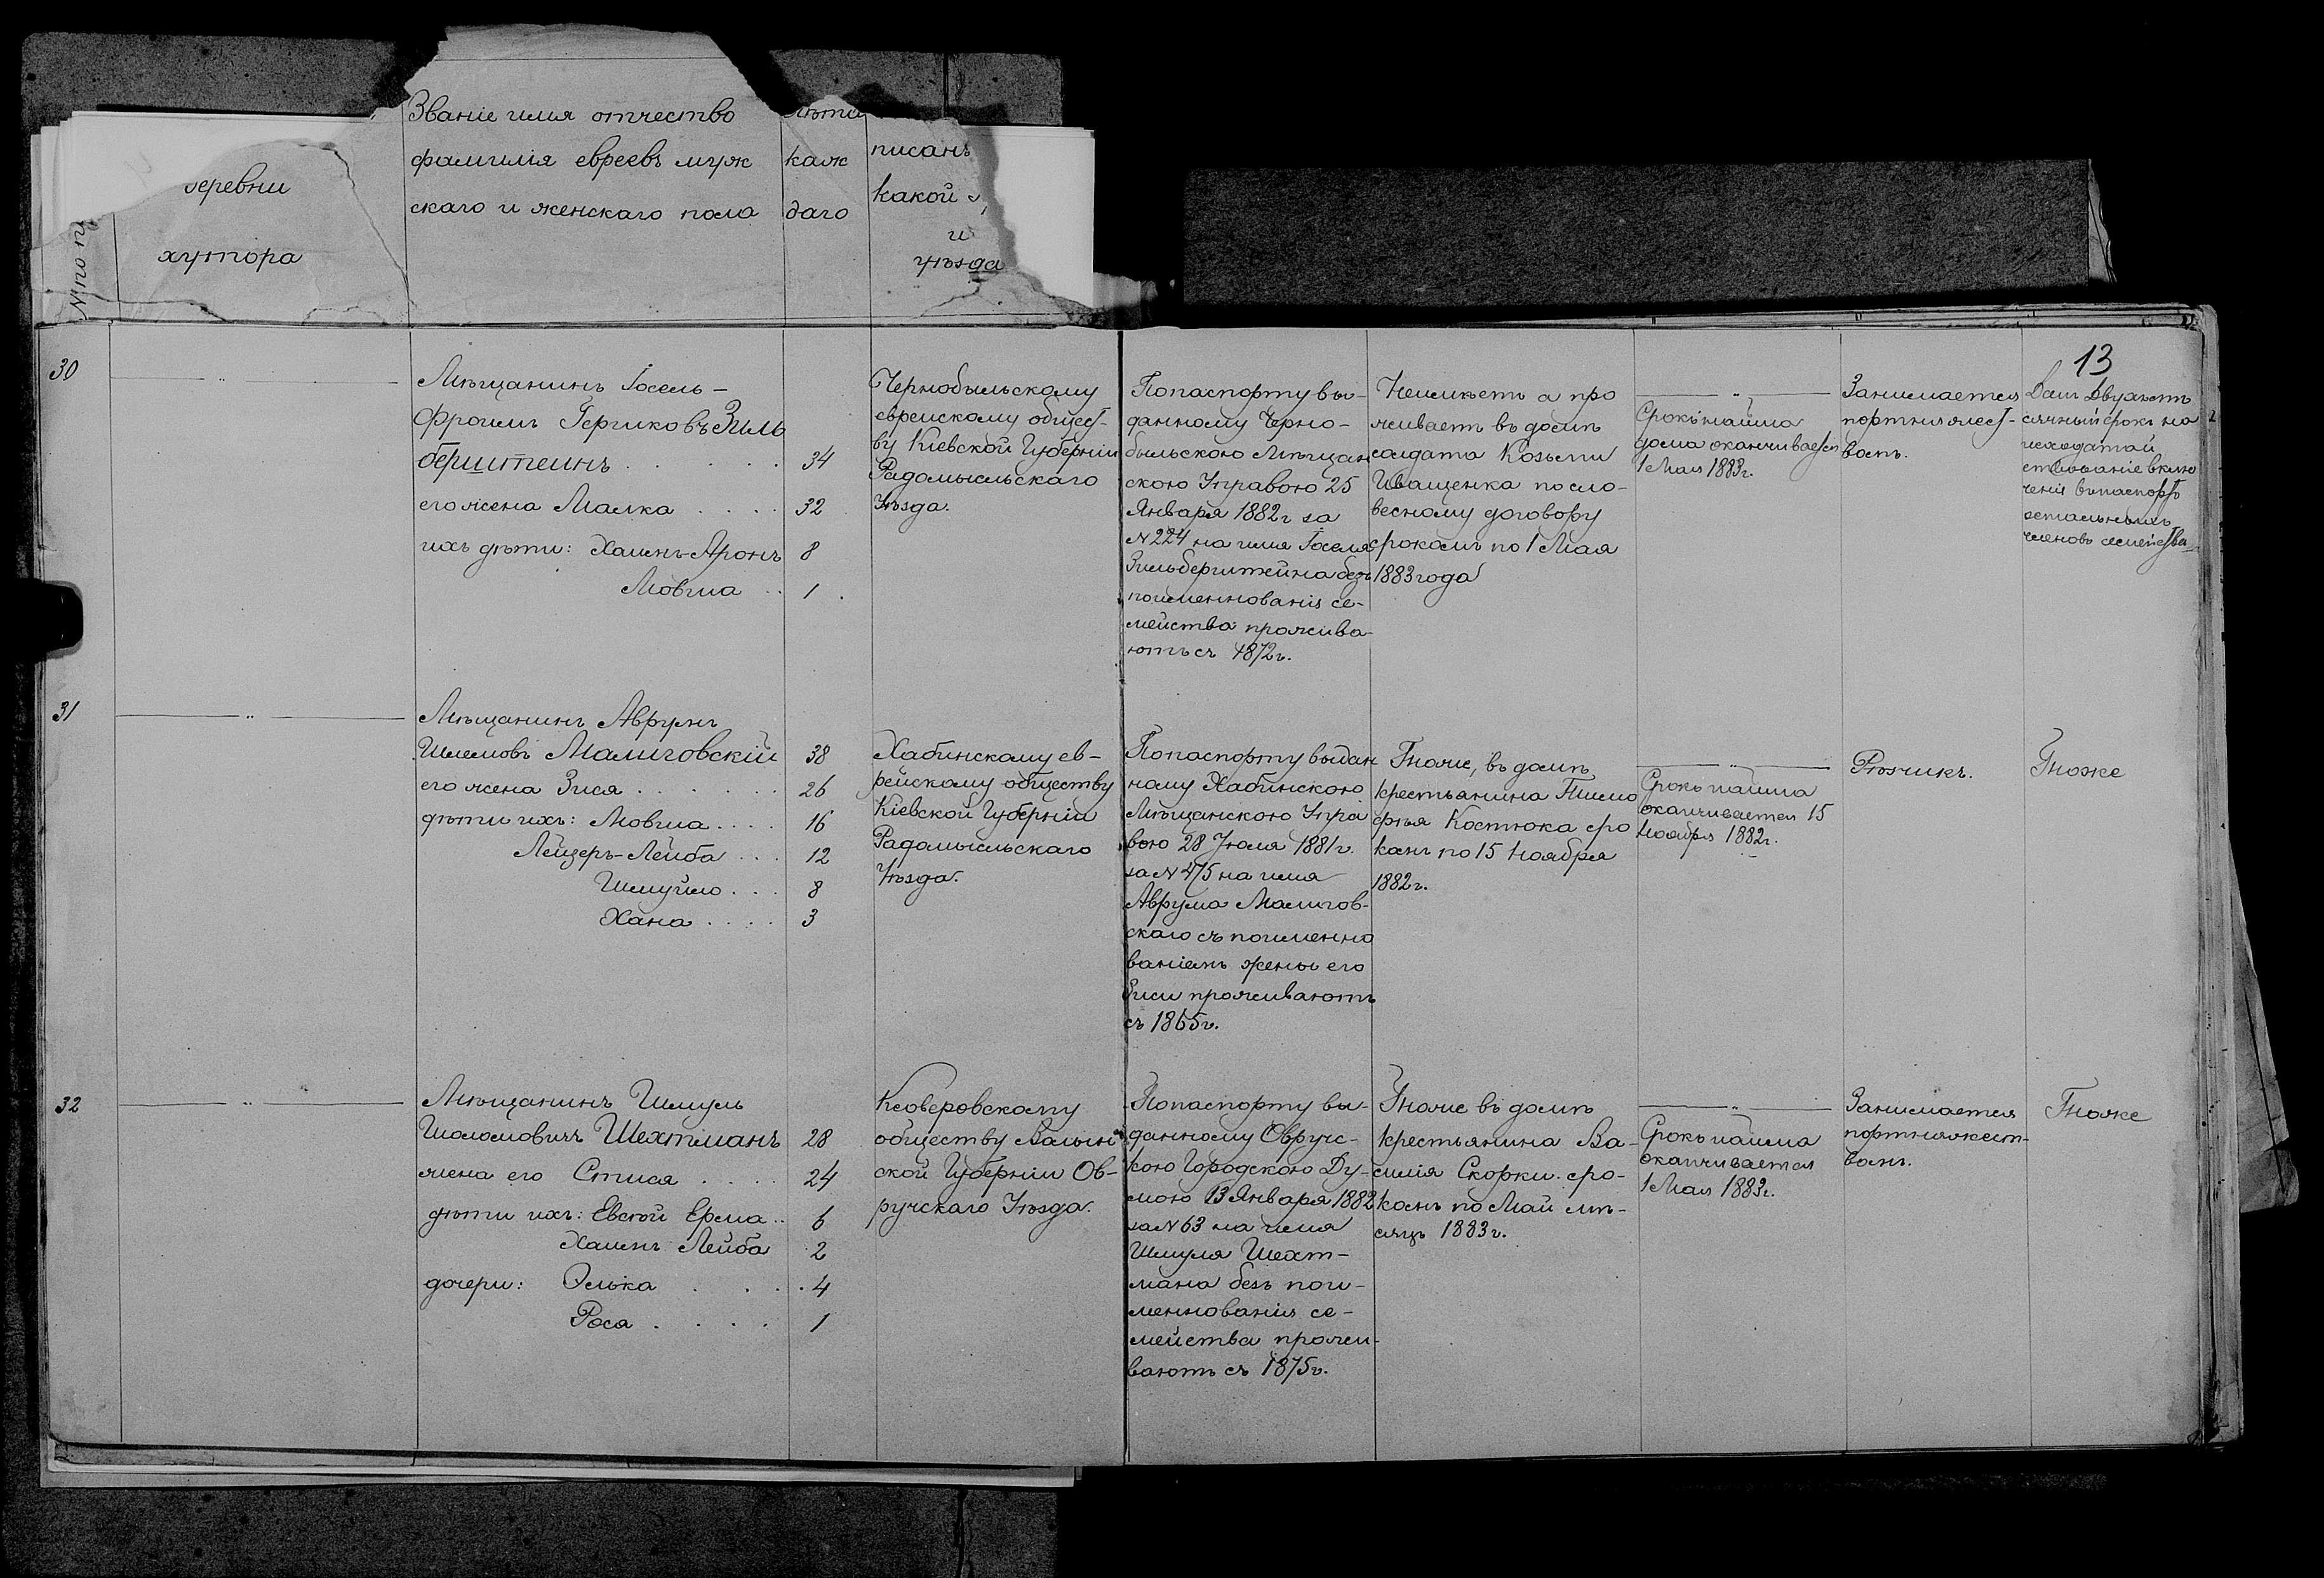 13
№ по п
деревни
хутора
Званіе имя отчество
фамилія евреевъ муж
скаго и женскаго пола
Лѣта
каж
даго
писанъ
какой
и
уѣзда
30
Мѣщанинъ Іосель-
Фроимъ Гершковъ Зиль
берштеинъ 34
его жена Малка 32
ихъ дѣти: Хаимъ-Аронъ 8
Мовша 1
Чернобыльскому
еврейскому общест-
ву Кіевской Губерніи
Радомысльскаго
Уѣзда.
По паспорту вы-
данному Черно-
быльскою Мѣщан
скою Управою 25
Января 1882 г за
№ 224 на имя Іоселя
Зильберштейна безъ
поименнованія се-
мейства прожива-
ютъ съ 1872 г.
Неимѣетъ а про
живаетъ въ домѣ
солдата Козьмы
Иващенка по сло-
весному договору
срокомъ по 1 Мая
1883 года
Срокъ найма
дома оканчивается
1 Мая 1883 г.
Занимается
портняжест-
вомъ.
Данъ двухмѣ
сячный срокъ на
исходатай
ствованіе вклю
ченія въ паспортъ
остальныхъ
членовъ семейства
31
Мѣщанинъ Аврумъ
Шлемовъ Малиговскій 38
его жена Зися 26
дѣти ихъ: Мовша 16
Лейзеръ-Лейба 12
Шмуйло 8
Хана 3
Хабинскому ев-
рейскому обществу
Кіевской Губерніи
Радомысльскаго
Уѣзда.
По паспорту выдан
ному Хабинскою
Мѣщанскою Упра
вою 28 Іюля 1881 г.
за № 475 на имя
Аврума Малигов-
скаго съ поименно
ваніемъ жены его
Зиси проживаютъ
съ 1865 г.
Тоже, въ домѣ
крестьянина Тимо
фѣя Костюка сро
комъ по 15 Ноября
1882 г.
Срокъ найма
оканчивается 15
Ноября 1882 г.
Рѣзчикъ.
Тоже
32
Мѣщанинъ Шмуль
Шоломовичъ Шехтманъ 28
жена его Стися 24
дѣти ихъ: Евсей Ерма 6
Хаимъ Лейба 2
дочери: Элька 4
Роса 1
обществу Волын
ской Губерніи Ов-
ручскаго Уѣзда.
По паспорту вы-
данному Овручс-
кою Городскою Ду-
мою 13 Января 1882
за № 63 на имя
Шмуля Шехт-
мана безъ пои-
менованія се-
мейства прожи-
ваютъ съ 1875 г.
Тоже въ домѣ
крестьянина Ва-
силія Скорки. сро-
комъ по Май мѣ-
сяцъ 1883 г.
Срокъ найма
оканчивается
1 Мая 1883 г.
Занимается
портняжест-
вомъ.
Тоже